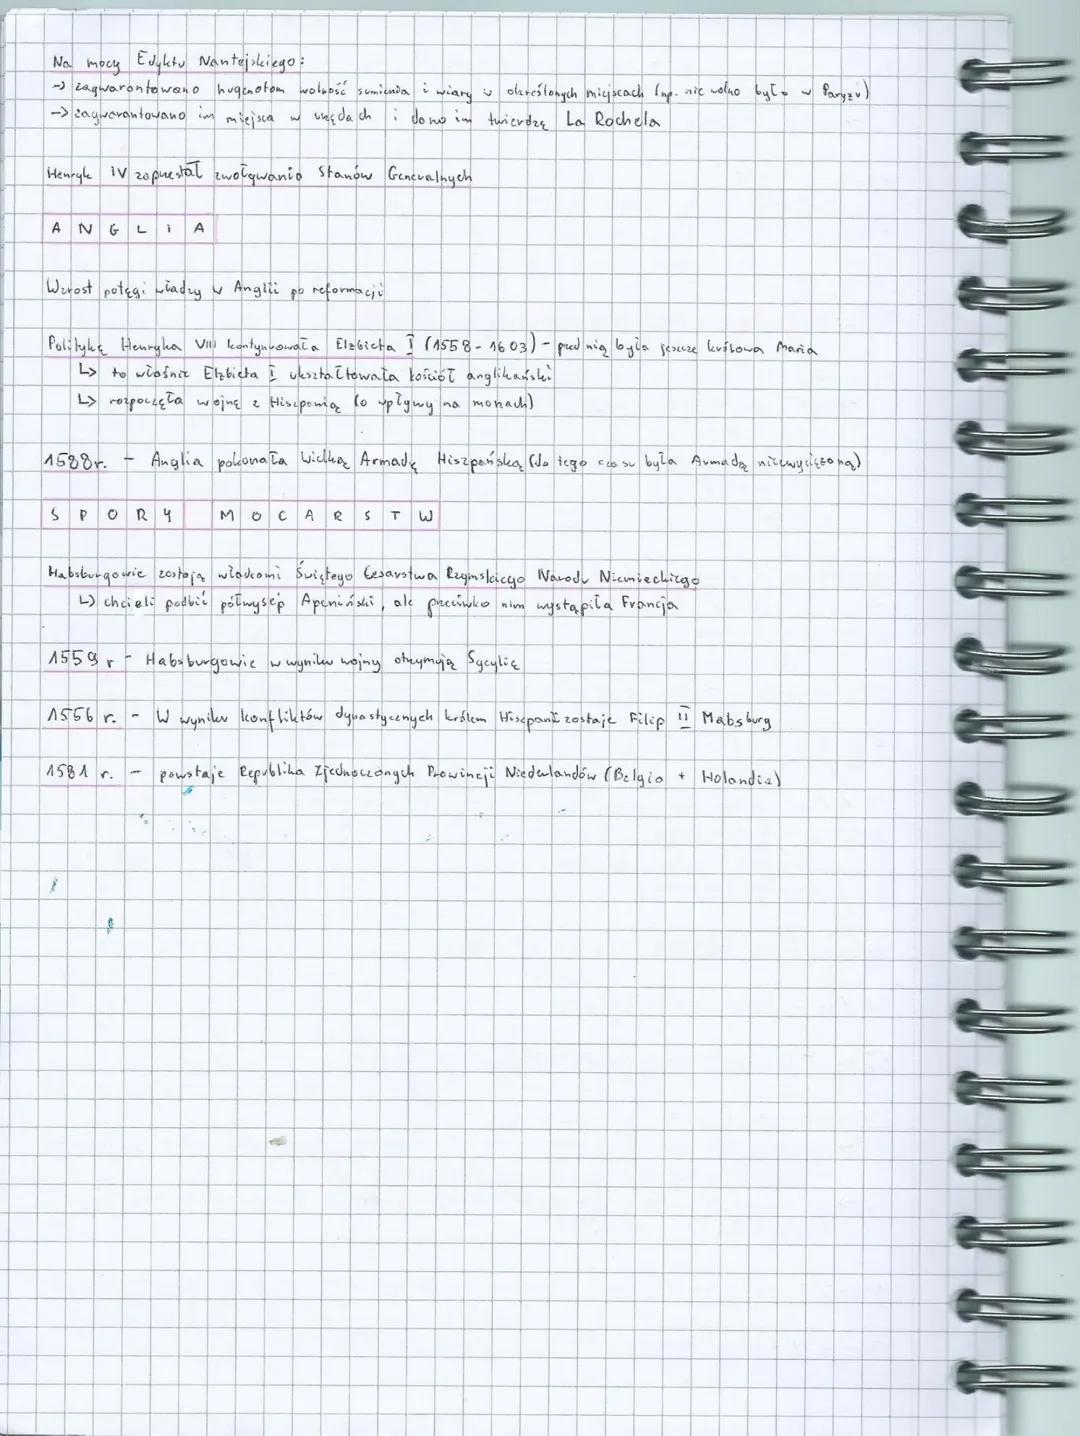 Na mocy Edyktu Nantejskiego:
-> zagwarantowano hugenotom wolność sumienia i wiary w określonych miejscach (np. nie wolno było w Paryżu)
-> zagwarantowano im miejsca w urzędach i dano im twierdzę La Rochela
Henryk IV zaprzestał zwoływania Stanów Generalnych
ANGLIA
Wzrost potęgi władzy w Anglii po reformacji
Politykę Henryka VIII kontynuowała Elżbieta I (1558-1603) - przed nią była jeszcze królowa Maria
↳ to właśnie Elżbieta I ukształtowała kościół anglikański
↳ rozpoczęła wojnę z Hiszpanią (o wpływy na morzach)
1588r. - Anglia pokonała Wielką Armadę Hiszpańską (do tego czasu była Armadą niezwyciężoną)
SPORY MOCARSTW
Habsburgowie zostają władcami Świętego Cesarstwa Rzymskiego Narodu Niemieckiego
↳ chcieli podbić półwysep Apeniński, ale przeciwko nim wystąpiła Francja
1559 r - Habsburgowie w wyniku wojny otrzymują Sycylię
1556 r. - W wyniku konfliktów dynastycznych królem Hiszpanii zostaje Filip II Habsburg
1581 r. - powstaje Republika Zjednoczonych Prowincji Niederlandów (Belgia + Holandia)